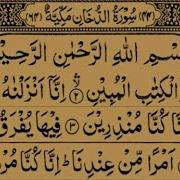 (۴۴) سُوْرَةُ الدُّخَانِ مَكِّيَّةٌ (۶۴)
سْمِ اللهِ الرَّحْمٰنِ الرَّحِيْ
الْكِتٰبِ الْمُبِيْنِ ۲ اِنَّاۤ اَنْزَلْنٰهُ
نَّا كُنَّا مُنْذِرِيْنَ ۳ فِيْهَا يُفْرَقُ
اَمْرًا مِّنْ عِنْدِنَا ؕ اِنَّا كُنَّا مُرْ